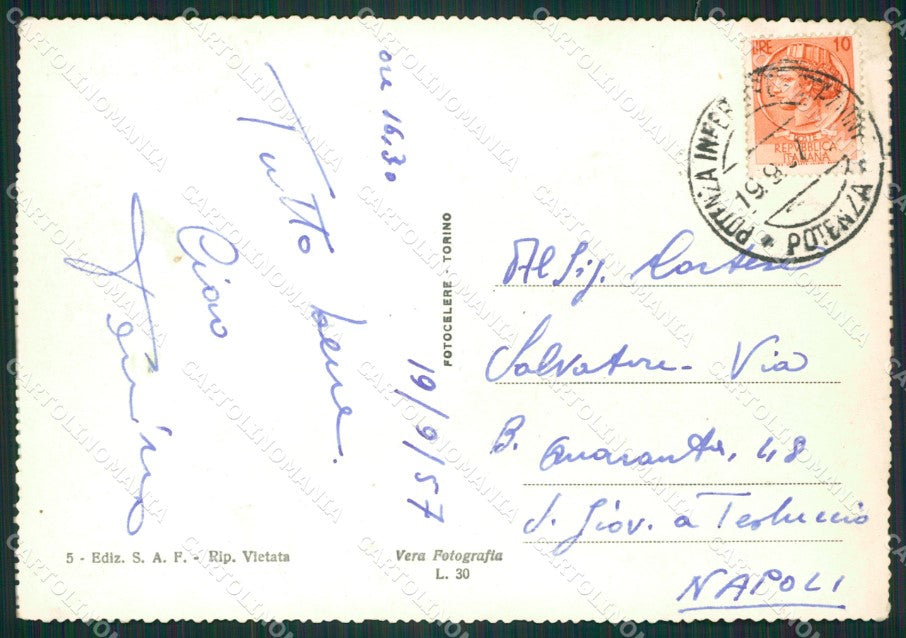 ore 16,30
19/9/57
Tutto bene.
Ciao
FOTOCELERE - TORINO
5 - Ediz. S. A. F. - Rip. Vietata
Vera Fotografia
L. 30
10
REPVBBLICA
ITALIANA
POTENZA INFER
POTENZA
19.9.
Al Sig. Cortese
Salvatore - Via
B. Quaranta, 48
S. Giov. a Teduccio
NAPOLI
CARTOLINOMANIA